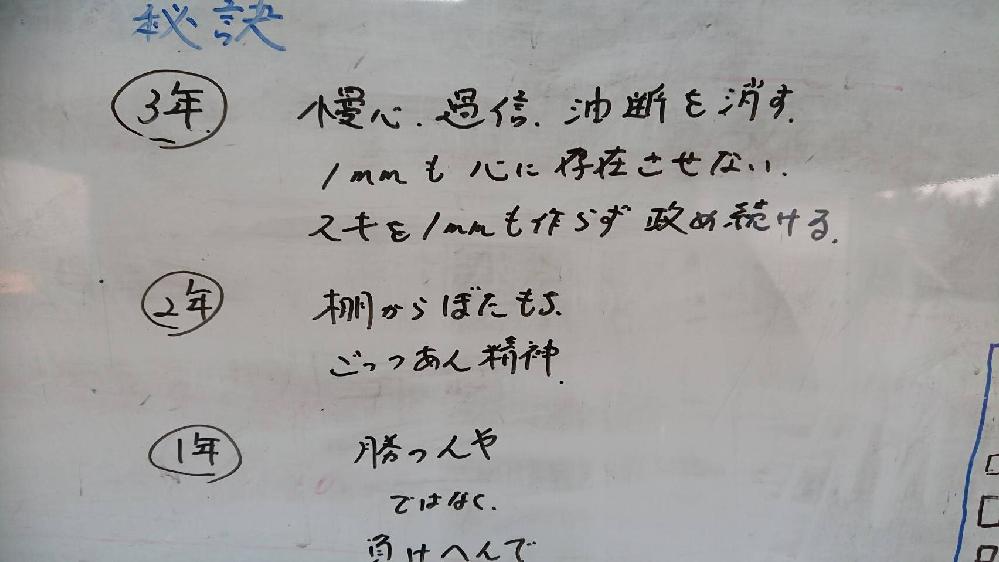 秘訣
3年 慢心.過信.油断を消す.
1mmも心に存在させない.
スキを1mmも作らず攻め続ける.
2年 棚からぼたもち.
ごっつあん精神.
1年 勝つんや
ではなく.
負けへんで